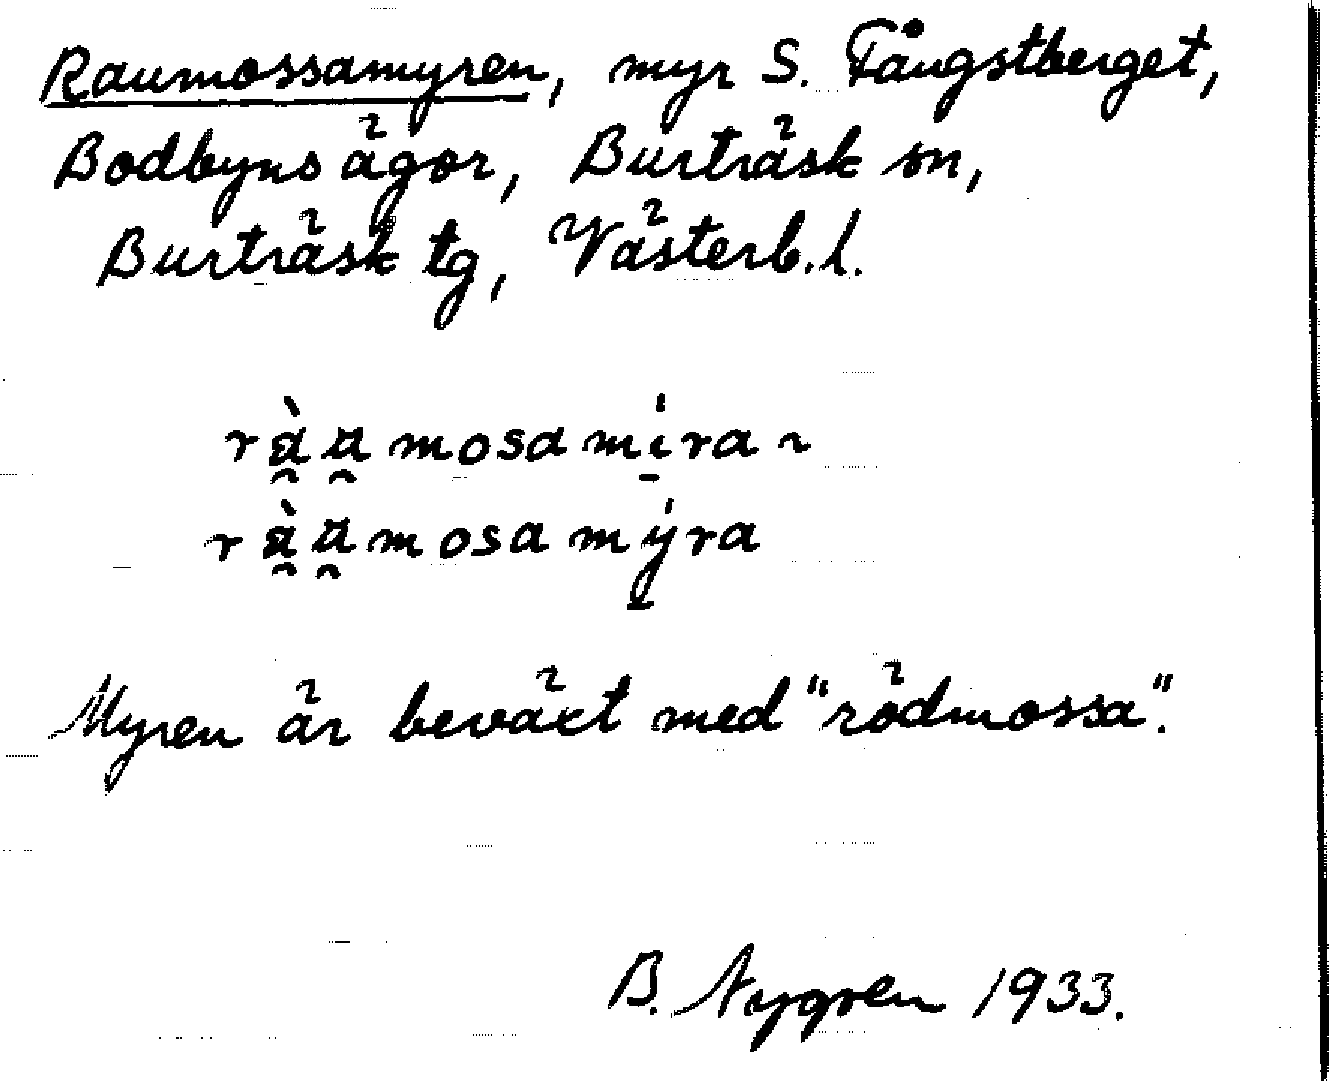 Raumossamyren, myr S. Fångstberget,
Bodbyns ägor, Burträsk sn,
Burträsk tg, Västerb. l.
myra ~
Myren är beväxt med "rödmossa".
B. Nygren 1933.